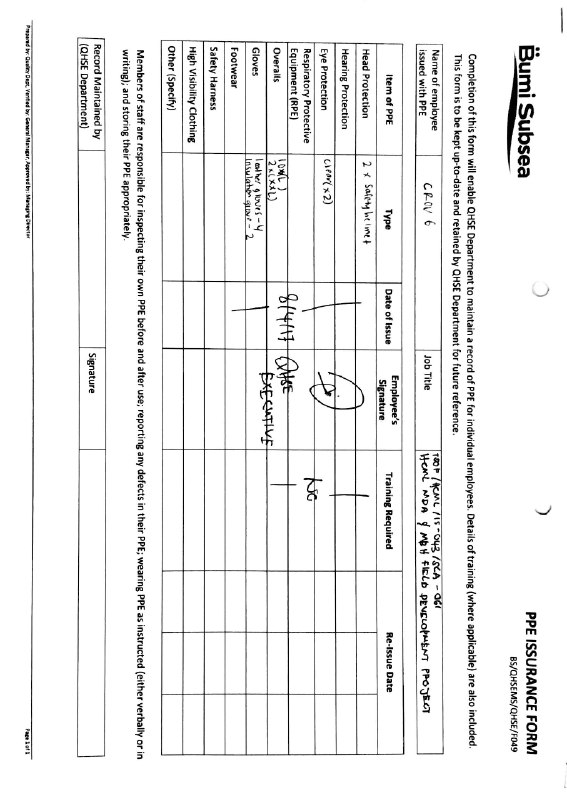 Bumi Subsea
PPE ISSURANCE FORM
BS/QHSEMS/QHSE/F049
Completion of this form will enable QHSE Department to maintain a record of PPE for individual employees. Details of training (where applicable) are also included.
This form is to be kept up-to-date and retained by QHSE Department for future reference.
Name of employee issued with PPE
CROV 6
Job Title
HCML MDA & MBH FIELD DEVELOPMENT PROJECT
Item of PPE Type Date of Issue Employee's Signature Training Required Re-Issue Date
Head Protection 2 x Safety helmet
Hearing Protection
Eye Protection Clear (x2)
Respiratory Protective Equipment (RPE)
Overalls 2x(XXL) 8/4/17 QHSE EXECUTIVE NO
Gloves leather gloves - 4
Insulation glove - 2
Footwear
Safety Harness
High Visibility Clothing
Other (Specify)
Members of staff are responsible for inspecting their own PPE before and after use; reporting any defects in their PPE; wearing PPE as instructed (either verbally or in
writing); and storing their PPE appropriately.
Record Maintained by (QHSE Department)
Signature
Prepared by: Quality Dept. Verified by: General Manager; Approved by: Managing Director
Page 1 of 1